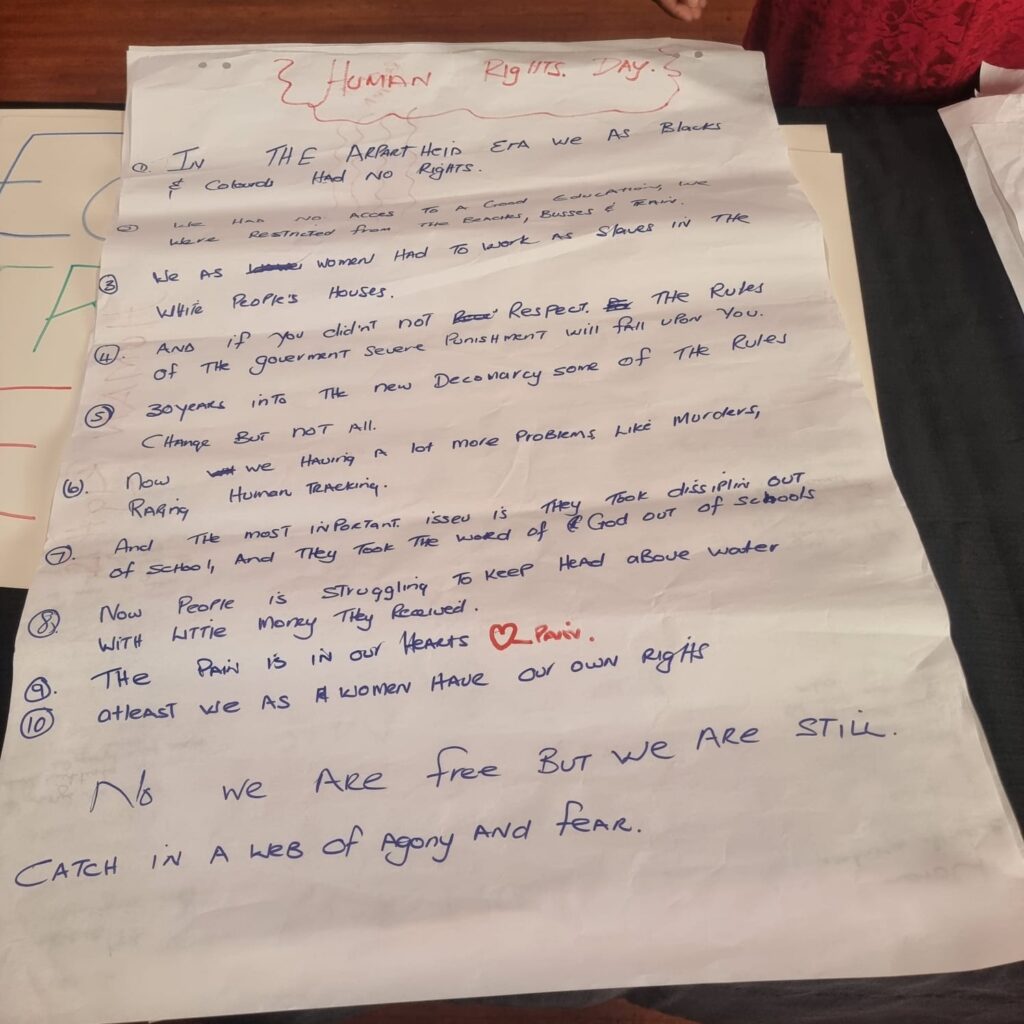 HUMAN RIGHTS. DAY.
① IN THE ARPARTHEID ERA WE AS BLACKS
& Colourds HAD NO RIGHTS.
② WE HAD NO ACCES TO A GOOD EDUCATION, WE
WERE RESTRICTED from THE BEACHES, BUSSES & TRAIN.
③ WE AS WOMEN HAD TO WORK AS SLAVES IN THE
WHITE PEOPLE'S HOUSES.
④. AND if you didn't not RESPECT. THE RULES
of THE goverment severe PUNISHMENT will fall upon YOU.
⑤ 30 YEARS INTO THE new Deconarcy some of THE RULES
CHANGE BUT NOT ALL.
⑥. NOW we HAVING A lot more PROBLEMS LIKE MURDERS,
RAPING HUMAN TRACKING.
⑦. AND THE most INPORTANT. isseu is THEY TOOK dissiplin OUT
of school, AND THEY TOOK THE WORD of God OUT of schools
⑧. Now PEOPLE is struggling TO KEEP HEAD ABOVE WATER
WITH LITTLE money THEY Received.
⑨. THE PAIN IS IN OUR HEARTS PAIN.
⑩ atleast WE AS WOMEN HAVE OUR OWN RIGHTS
No WE ARE free BUT WE ARE STILL.
CATCH IN A WEB of Agony AND fear.